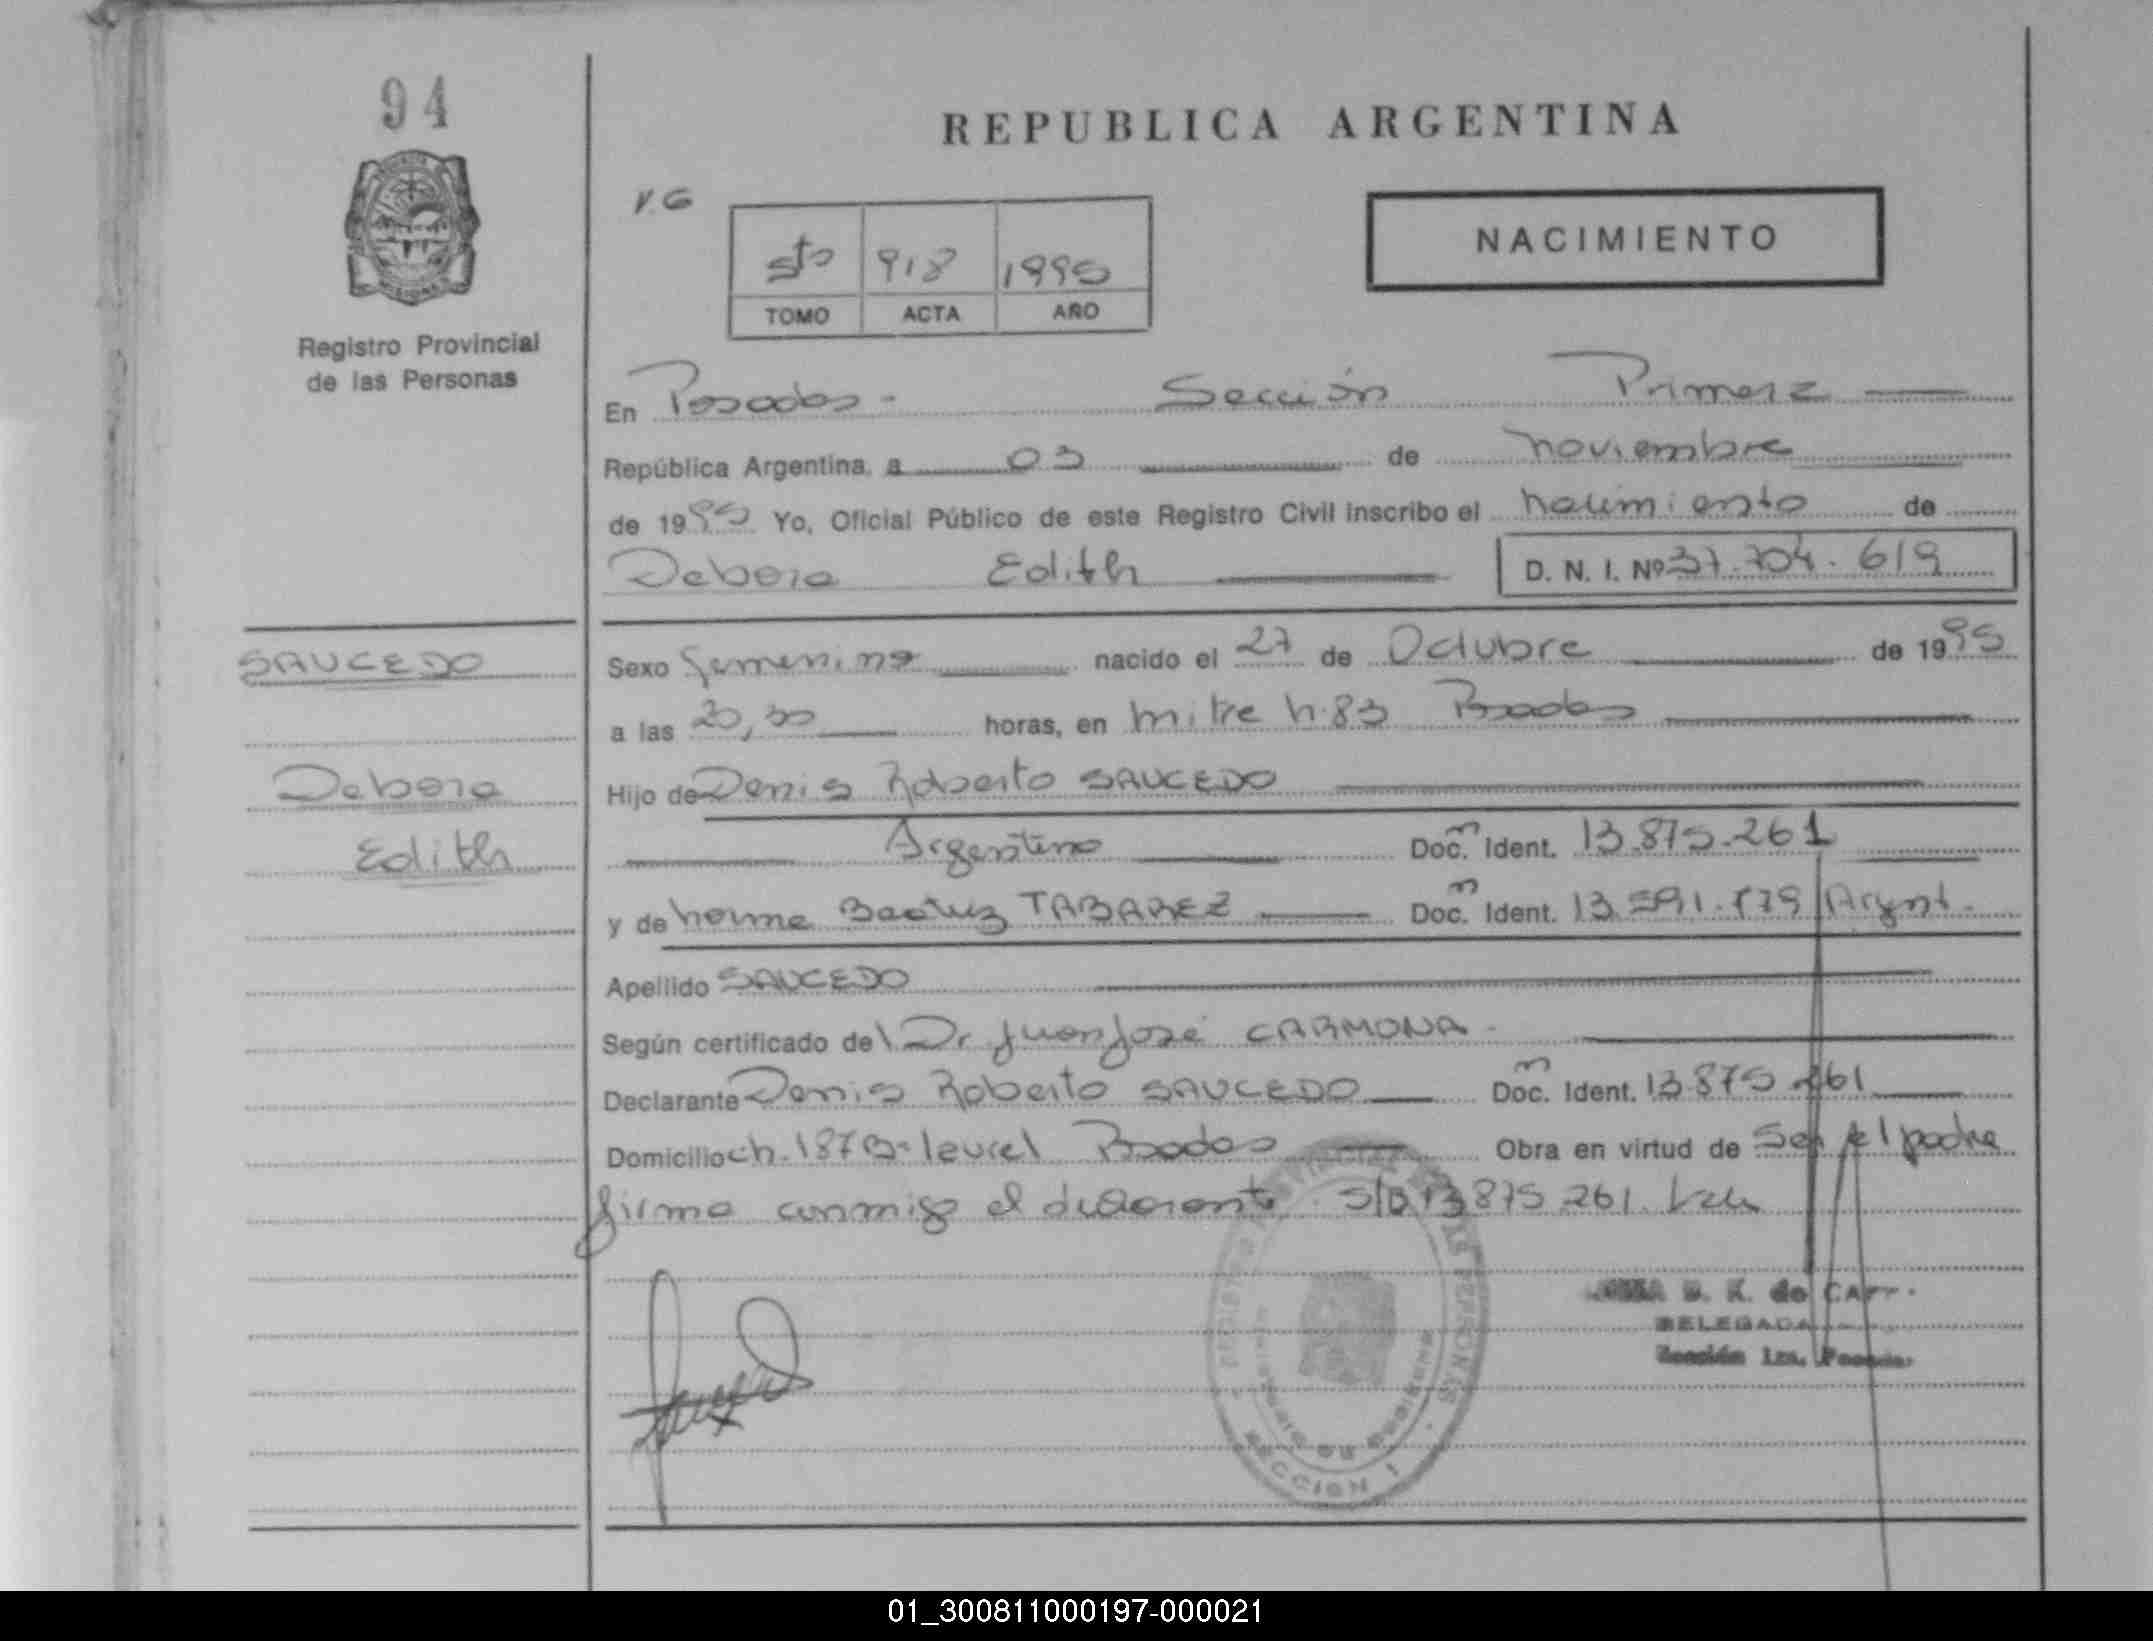 94
REPUBLICA ARGENTINA
V.G
5to 918 1995
TOMO ACTA AÑO
NACIMIENTO
Registro Provincial
de las Personas
En Posadas - Sección Primera
República Argentina, a 03 de noviembre
de 1995 Yo, Oficial Público de este Registro Civil inscribo el nacimiento de
Debora Edith D. N. I. Nº 37.704.619
SAUCEDO
Debora
Edith
Sexo femenino nacido el 27 de Octubre de 1995
a las 20,30 horas, en mitre n.83 Posadas
Hijo de Denis Roberto SAUCEDO
Argentino Doc. Ident. 13.875.261
y de norma Beatriz TABAREZ Doc. Ident. 13.591.179 Argent.
Apellido SAUCEDO
Según certificado del Dr Juan José CARMONA -
Declarante Denis Roberto SAUCEDO Doc. Ident. 13 875 261
Domicilio ch. 187 B: laurel Posadas Obra en virtud de Ser el padre
firma conmigo el declarante. S/B 13 875 261. Vale
D. K. de
DELEGADA
Sección 1ra. Posadas
SECCION 1
01_300811000197-000021